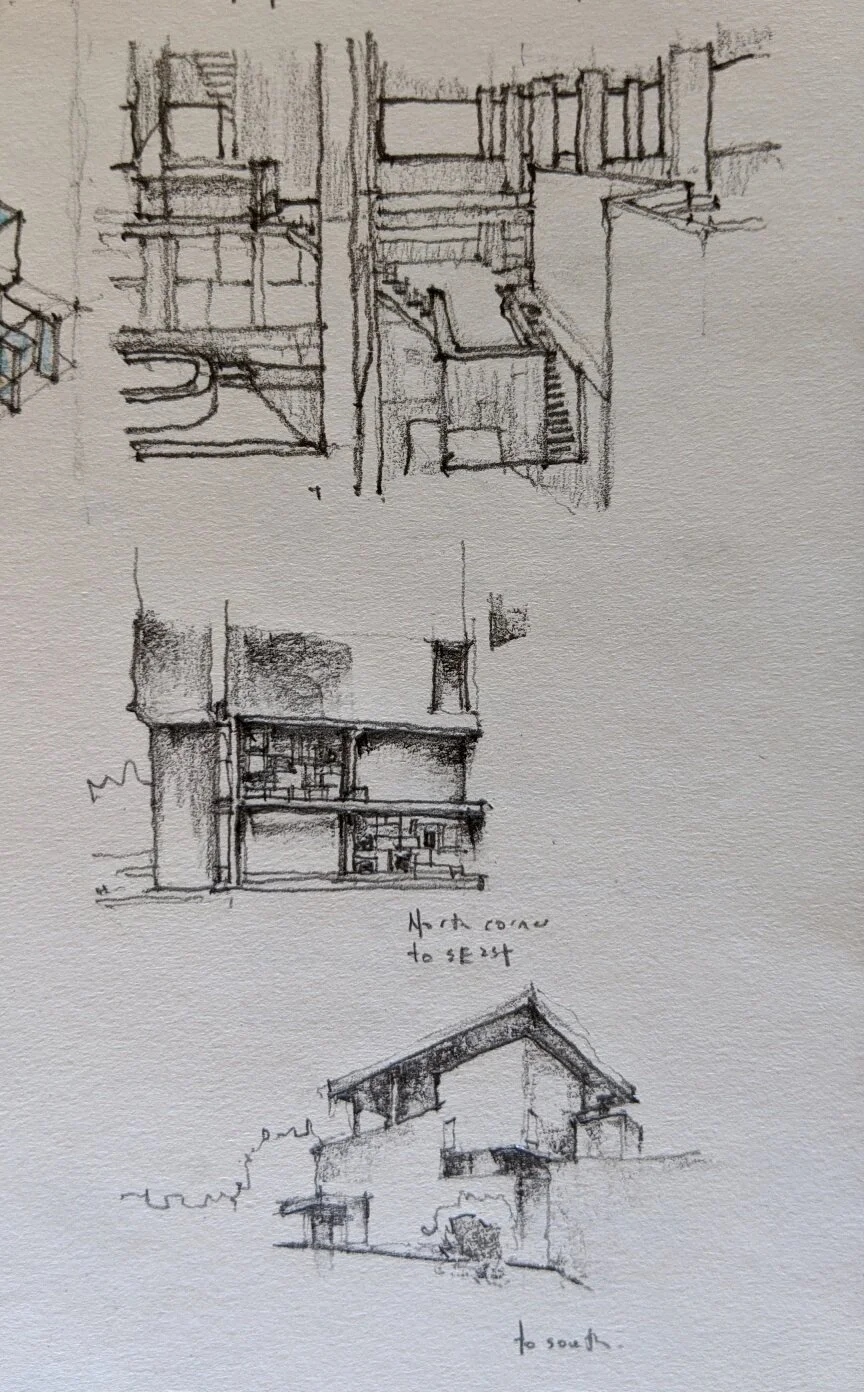 North corner
to SEast
to south.